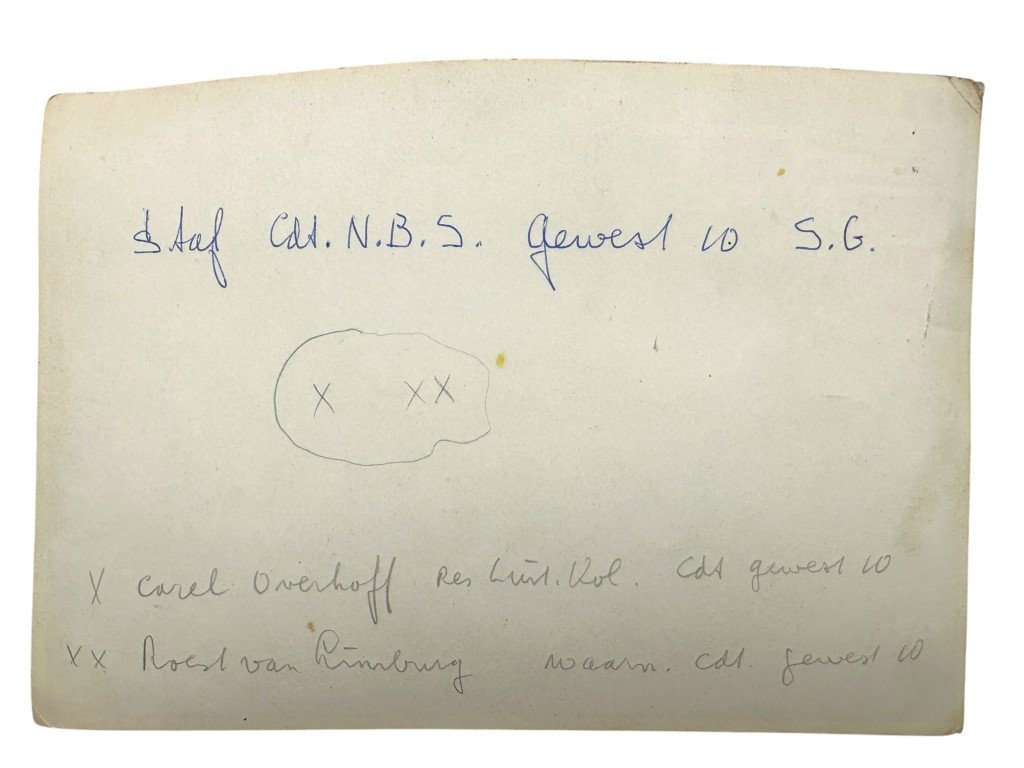 Staf Cdt. N.B.S. Gewest 10 S.G.
X XX
X Carel Overhoff Res. Luit. Kol. Cdt gewest 10
XX Roest van Limburg waarn. cdt. gewest 10